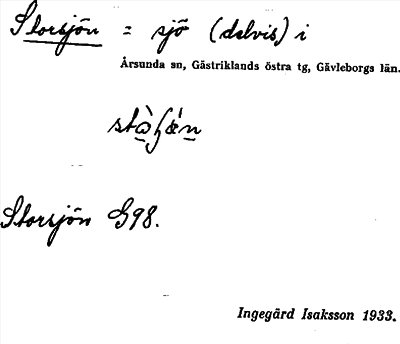 Storsjön = sjö (delvis) i
Årsunda sn, Gästriklands östra tg, Gävleborgs län.
Storsjön G98.
Ingegärd Isaksson 1933.